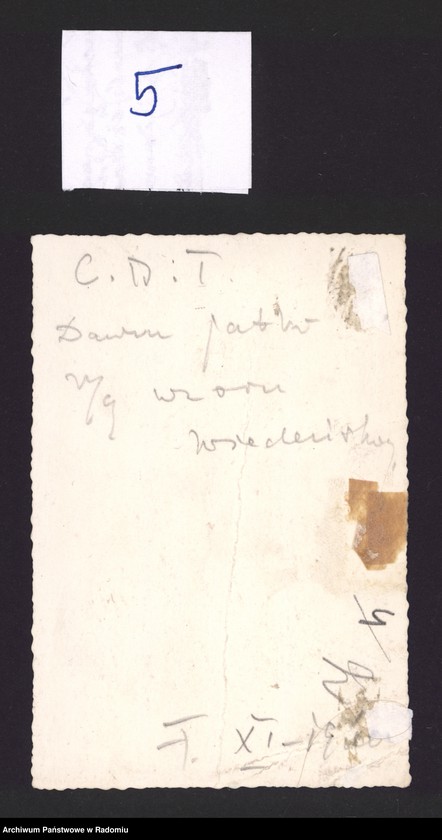 5
C.D.T.
Dawne jatki
w/g wzoru
wiedeńskiego
4
F. XI-19
Archiwum Państwowe w Radomiu